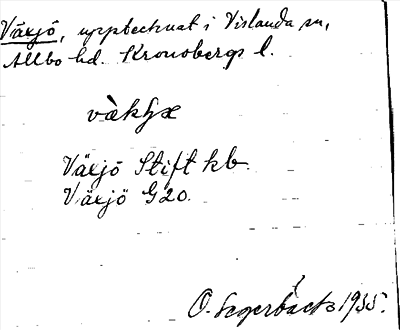 Växjö, upptecknat i Vislanda sn,
Allbo hd. Kronobergs l.
Växjö Stift kb.
Växjö G20.
O. Segerbäck 1935.